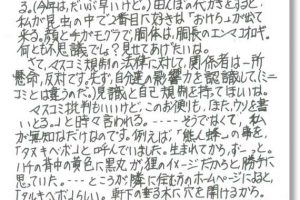 る。(今年は、だいぶ早いけど。)田んぼの代かきをすると、
私が昆虫の中で2番目に好きな「おけら」が出て
来る。顔と手がモグラで、胴体は、胴長のエンマコオロギ。
何とも不思議でしょ？見せてあげたいな。
さて、マスコミ規制の法律に対して、関係者は一所
懸命、反対です。先ず、自分達の影響力を認識して、(ミニ
コミとは違うのだ。)見識と自己規制を持ってほしいな。
マスコミ批判もいいけど、このお便りも、「また、ウソを書
いとる。」と時々言われる。……そうでなくて、私
が無知なだけなのです。例えば、「熊ん蜂」の事を、
「タヌキヘボ」と呼んでいました。生まれてから、ずーっと。
ハチの背中の黄色に黒丸が、狸のイメージだからと勝手に
思っていた。……ところが隣に住む方のホームページによると、
「タルキヘボ」らしい。軒下の垂る木に穴を開けるから。